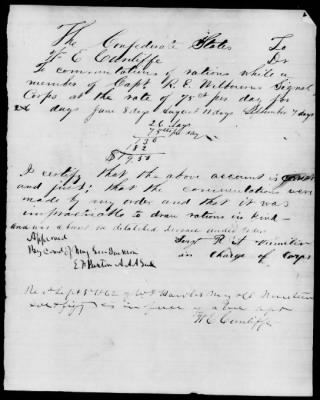 The Confederate States To
W. E. Cunliffe Dr
To commutations of rations while a
member of Capt R. E. Wilbourn Signal
Corps at the rate of 75cts per day for
26 days June 8 days August 11 days September 7 days
26 days
75cts per day
130
182
$19.50
I certify that the above account is correct
and just; that the commutations were
made by my order and that it was
impracticable to draw rations in kind
and was absent on detached service under
Approved Sergt R. A.
By Comd of Maj Gen Jackson in Charge of Corps
E. F. Paxton A.A.A Genl
Recd Sept 1862 of W. J. Hawks Maj &
in full of above
W E Cunliffe